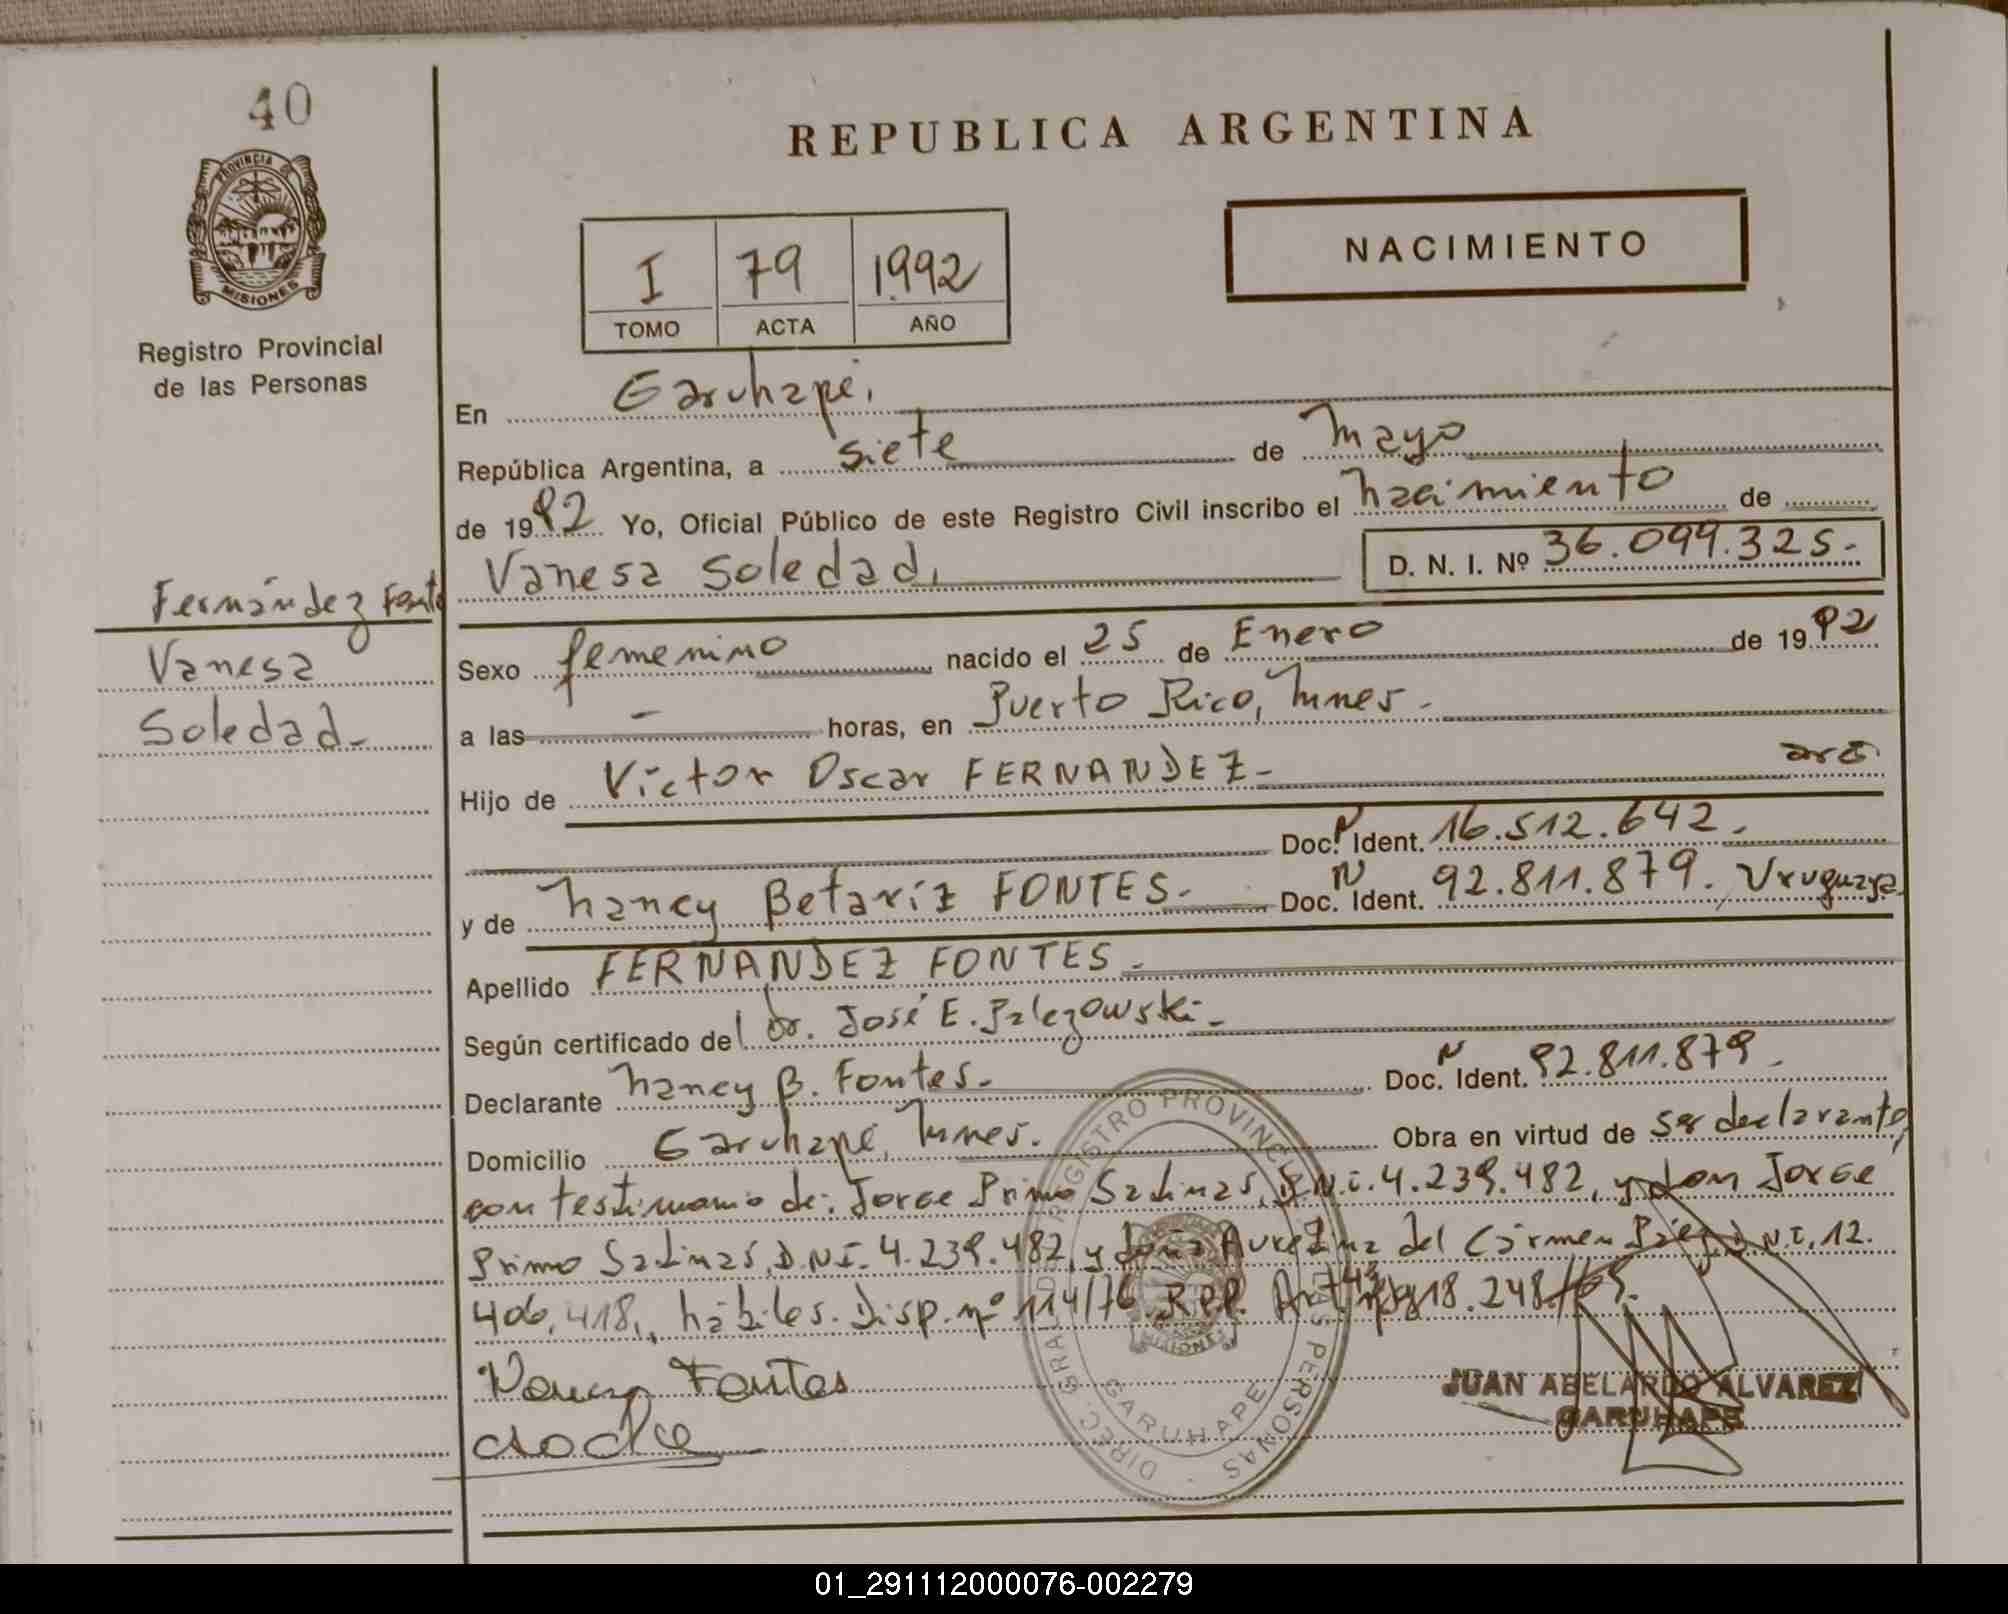 40
PROVINCIA DE
MISIONES
Registro Provincial
de las Personas
REPUBLICA ARGENTINA
NACIMIENTO
I 79 1992
TOMO ACTA AÑO
En Garuhapé,
República Argentina, a siete de Mayo
de 1992 Yo, Oficial Público de este Registro Civil inscribo el nacimiento de
Vanesa Soledad, D. N. I. Nº 36.099.325.-
Fernández Fonte
Vanesa
Soledad.-
Sexo femenino nacido el 25 de Enero de 1992
a las - horas, en Puerto Rico, Mnes.-
Hijo de Victor Oscar FERNANDEZ.- arg
Doc. N Ident. 16.512.642.
y de Nancy Betariz FONTES.- Doc. N Ident. 92.811.879. Uruguaya.
Apellido FERNANDEZ FONTES.-
Según certificado del Dr. José E. Palezowski.-
Declarante Nancy B. Fontes.- Doc. N Ident. 92.811.879.
Domicilio Garuhapé, Mnes. Obra en virtud de ser declarante,
con testimonio de: Jorge Primo Salinas, D.N.I. 4.239.482, y don Jorge
Primo Salinas, D.N.I. 4.239.482, y doña Aurelina del Cármen D.N.I. 12.
406.418,, hábiles. Disp. nº 114/76 R.P.P. Art. 18.248/69.
Nancy Fontes
DIREC. GRAL. DE REGISTRO PROVINCIAL DE LAS PERSONAS
GARUHAPE
MISIONES
JUAN ABELARDO ALVAREZ
GARUHAPE
01_291112000076-002279